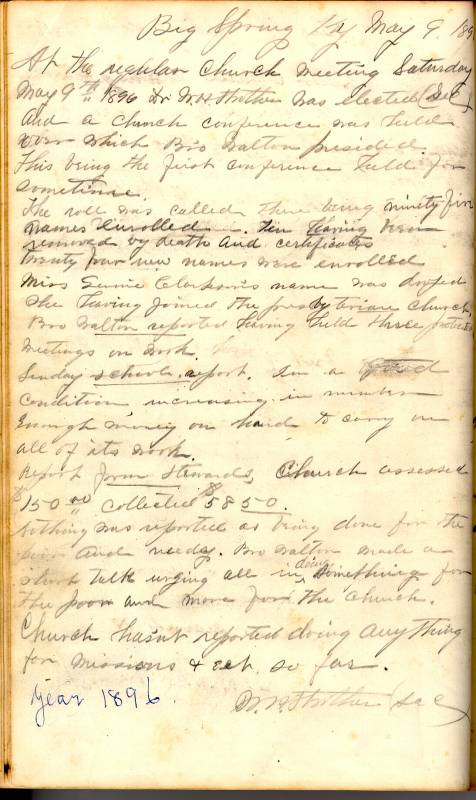 Big Spring Ky May 9. 189
At the regular Church meeting Saturday
May 9th 1896 Dr W.H. Strother was elected (Sec)
And a church conference was held
over which Bro Walton presided.
This being the first conference held for
sometime.
The roll was called there being ninety five
names enrolled. ten having been
removed by death and certificates
twenty four new names were enrolled
Miss Clarkson's name was droped
She having joined the presbyterian church.
Bro Walton reported having held three
meetings on work.
Sunday school report. In a good
condition, increasing in number
Enough money on hand to carry on
all of its work.
Report from Stewards, Church assessed
$150.00 collected $58.50.
Nothing was reported as being done for the
poor and needy. Bro Walton made a
short talk urging all in doing something for
the poor and more for the Church.
Church hasn't reported doing anything
for missions & ect. so far.
W.H. Strother Sec
Year 1896.